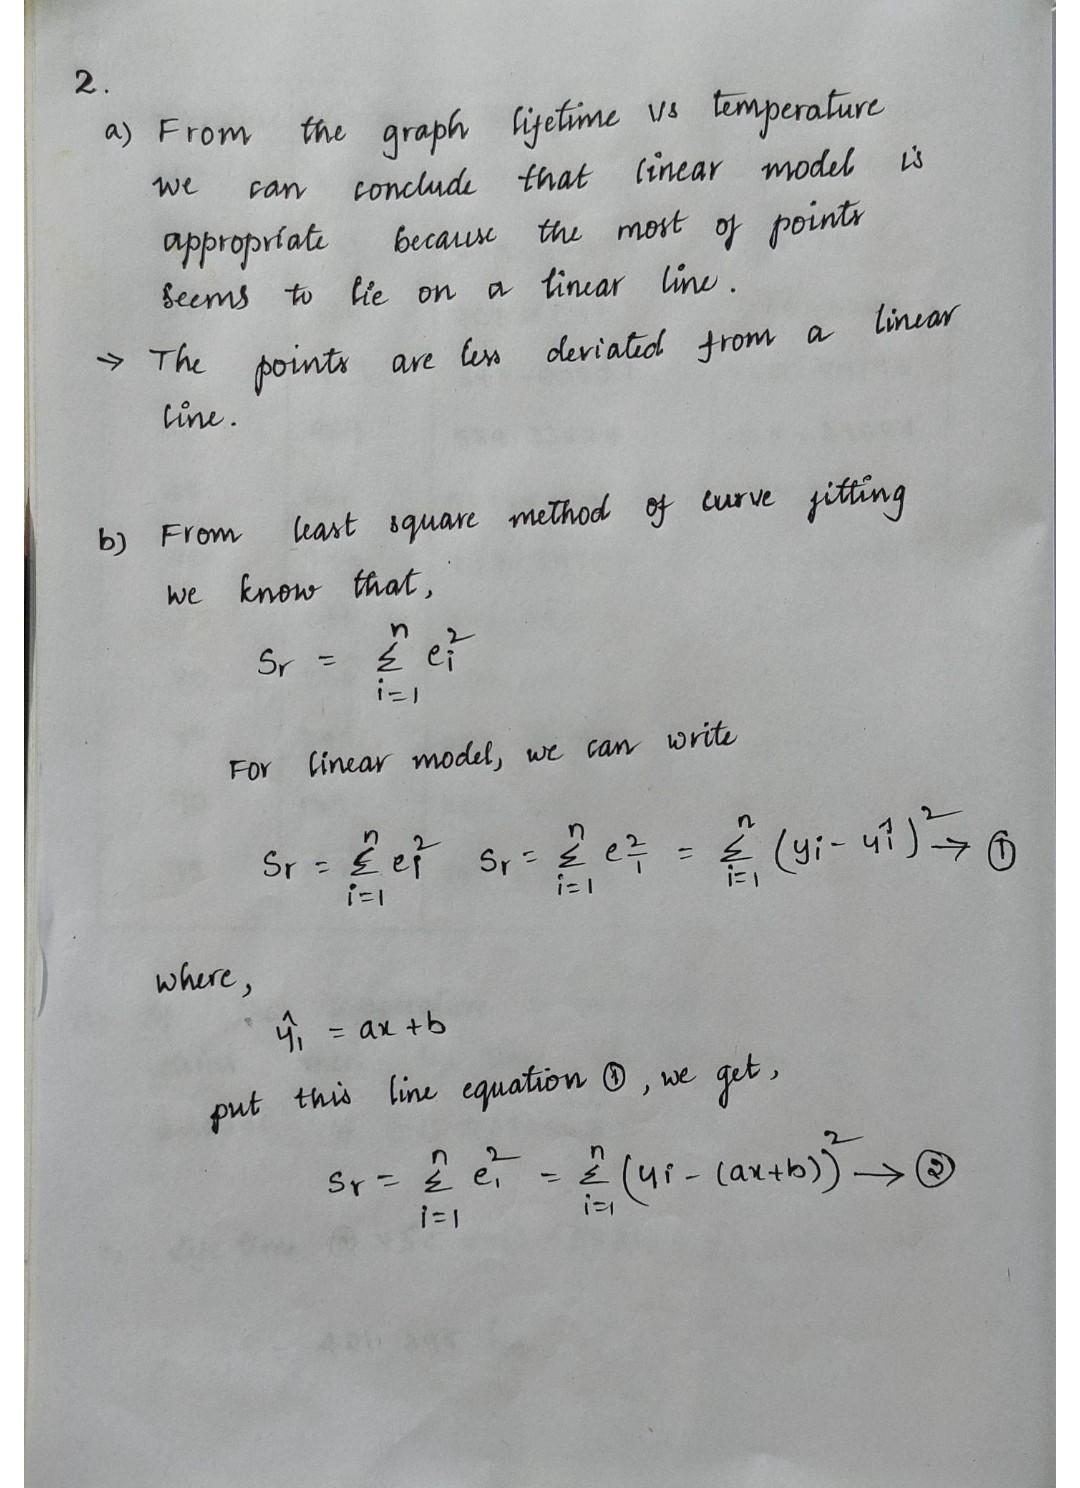 2.
a) From the graph lifetime vs temperature
we can conclude that linear model is
appropriate because the most of points
seems to lie on a linear line.
→ The points are less deviated from a linear
line.
b) From least square method of curve fitting
we know that,
Sr = Σ_{i=1}^{n} e_i^2
For linear model, we can write
Sr = Σ_{i=1}^{n} e_i^2 Sr = Σ_{i=1}^{n} e_i^2 = Σ_{i=1}^{n} (yi - ŷi)^2 → ①
where,
ŷ_i = ax + b
put this line equation ①, we get,
Sr = Σ_{i=1}^{n} e_i^2 = Σ_{i=1}^{n} (yi - (ax+b))^2 → ②